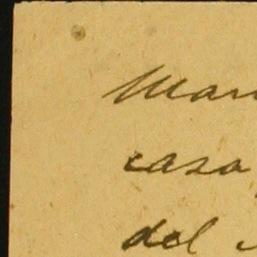 Man
casa
del